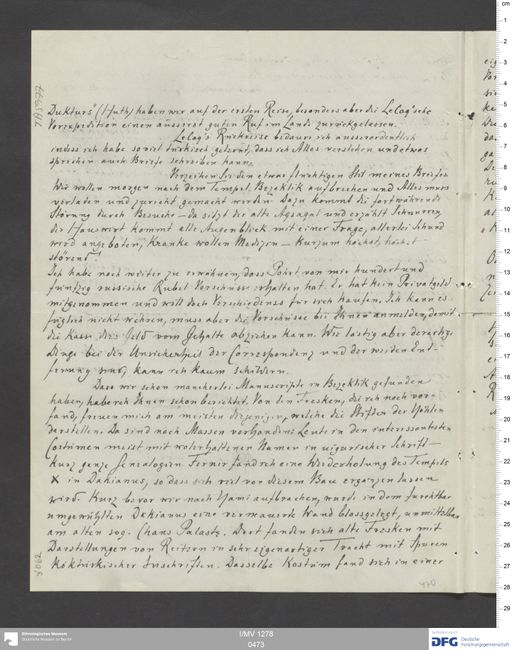 Dukturs" (Huth) haben wir auf der ersten Reise, besonders aber die LeCoq'sche
Vorexpedition einen äusserst guten Ruf im Lande zurückgelassen.
LeCoq's Rückreise bedaure ich ausserordentlich
indess ich habe soviel türkisch gelernt, dass ich Alles verstehen und etwas
sprechen auch Briefe schreiben kann.
Verzeihen Sie den etwas flüchtigen Stil meines Briefes
Wir wollen morgen nach dem Tempel Bezeklik aufbrechen und Alles muss
verladen und zurecht gemacht werden. Dazu kommt die fortwährende
Störung durch Besuche – da sitzt der alte und erzählt Schnurren,
der Hauswirt kommt alle Augenblick mit einer Frage, allerlei Schund
wird angeboten, Kranke wollen Medizin – kurzum höchst, höchst
störend!
Ich habe noch weiter zu erwähnen, dass Pohrt von mir hundert und
fünfzig russische Rubel Vorschuss erhalten hat. Er hat kein Privatgeld
mitgenommen und will doch Verschiedenes für sich kaufen. Ich kann es
füglich nicht wehren, muss aber die Vorschüsse bei Ihnen anmelden, damit
die Kasse das Geld vom Gehalte abziehen kann. Wie lästig aber derartige
Dinge bei der Unsicherheit der Correspondenz und der weiten Ent-
fernung sind, kann ich kaum schildern.
Dass wir schon mancherlei Manuscripte in Bezeklik gefunden
haben, habe ich Ihnen schon berichtet. Von den Fresken, die ich noch vor-
fand, freuen mich am meisten diejenigen, welche die Stifter der Höhlen
darstellen. Da sind noch Massen vorhanden: Leute in den interessantesten
Costümen meist mit wolerhaltenen Namen in uigurischer Schrift –
kurz ganze Genealogien. Ferner fand ich eine Wiederholung des Tempels
X in Dakianus, so dass sich viel von diesem Bau ergänzen lassen
wird. Kurz bevor wir nach Hami aufbrachen, wurde in dem furchtbar
umgewühlten Dakianus eine vermauerte Wand blossgelegt, unmittelbar
am alten sog. Chans Palast. Dort fanden sich alte Fresken mit
Darstellungen von Reitern in sehr eigenartiger Tracht mit Spuren
köktürkischer Inschriften. Dasselbe Kostüm fand sich in einer
TA 5977
8062
470
I/MV 1278
0473
Ethnologisches Museum
Staatliche Museen zu Berlin
DFG
Deutsche
Forschungsgemeinschaft
cm
1
2
3
4
5
6
7
8
9
10
11
12
13
14
15
16
17
18
19
20
21
22
23
24
25
26
27
28
29